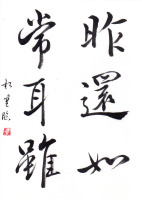 昨還如
常耳雖